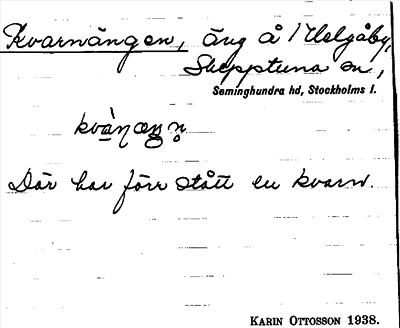 Kvarnängen, äng å Helgåby,
Skepptuna sn,
Seminghundra hd, Stockholms l.
Där har förr stått en kvarn.
KARIN OTTOSSON 1938.